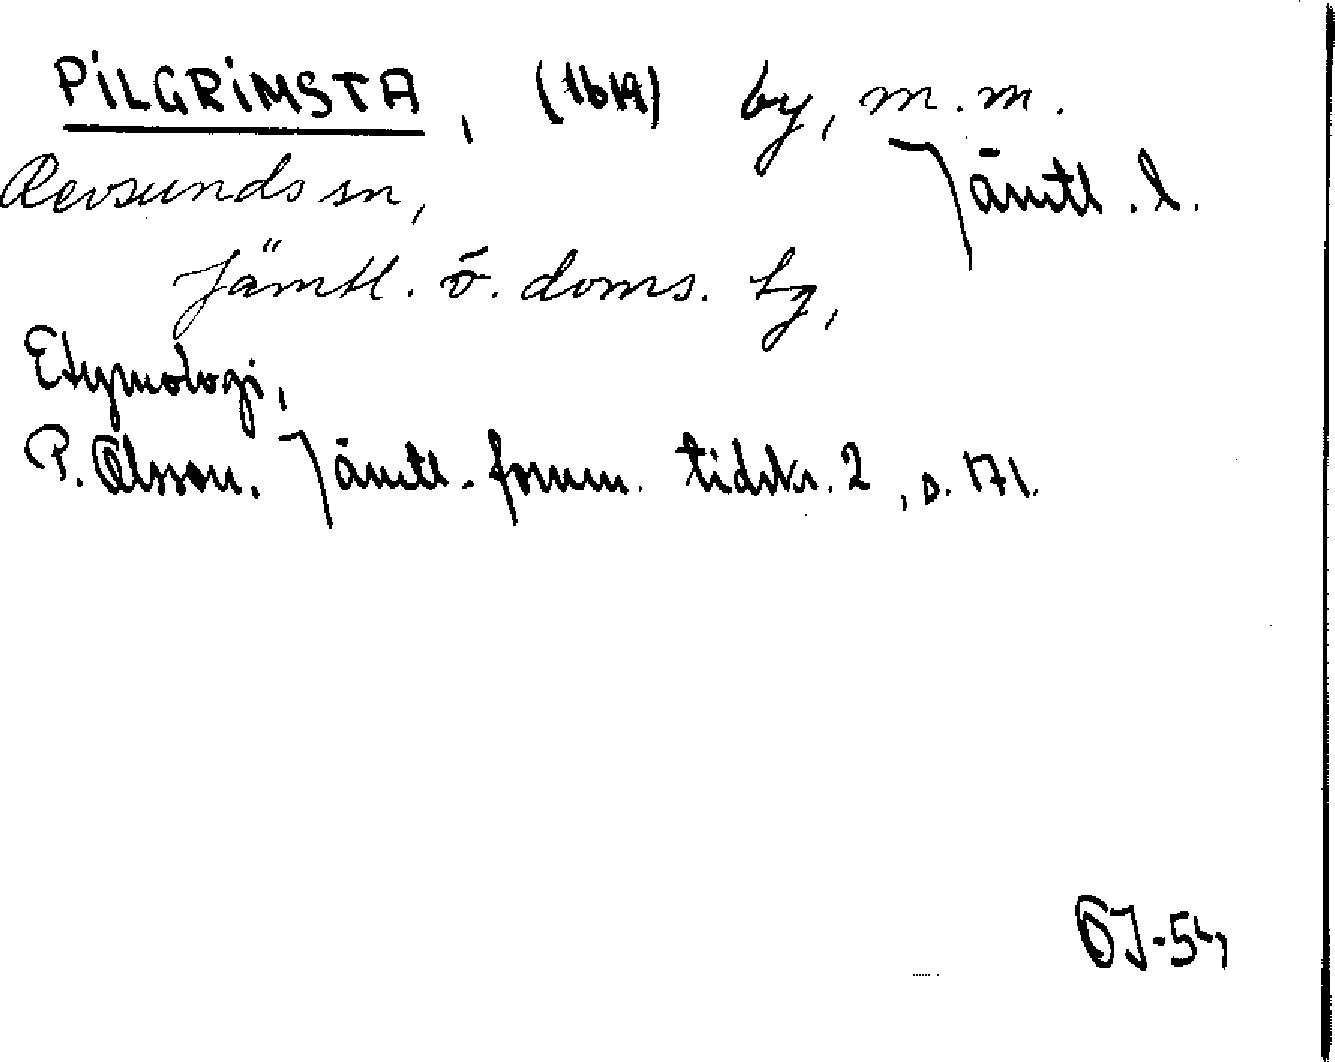 PILGRIMSTA, by, m.m.
Revsunds sn, Jämtl. l.
Jämtl. ö. doms. tg,
Etymologi,
P. Olsson. Jämtl. fornm. tidskr. 2, s. 171.